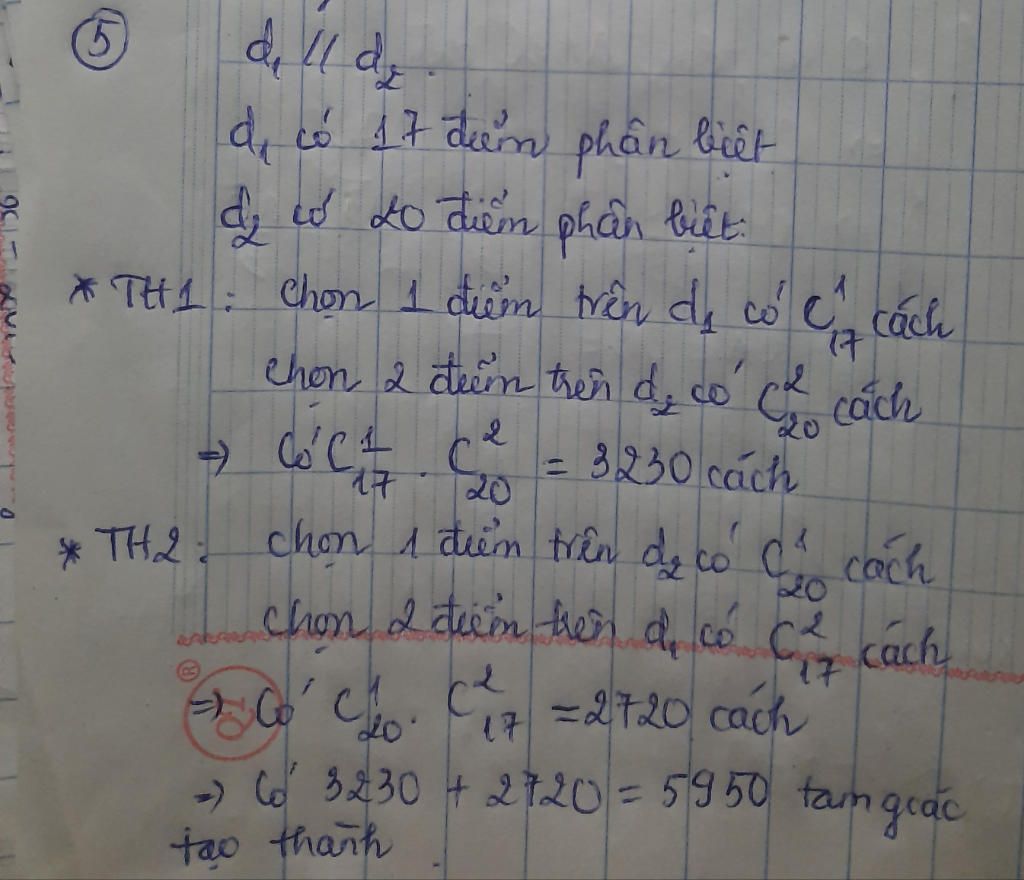 ⑤ d₁ // d₂.
d₁ có 17 điểm phân biệt
d₂ có 20 điểm phân biệt.
* TH1: chọn 1 điểm trên d₁ có C¹₁₇ cách
chọn 2 điểm trên d₂ có C²₂₀ cách
⇒ Có C¹₁₇ . C²₂₀ = 3230 cách
* TH2: chọn 1 điểm trên d₂ có C¹₂₀ cách
chọn 2 điểm trên d₁ có C²₁₇ cách
⇒ Có C¹₂₀ . C²₁₇ = 2720 cách
⇒ Có 3230 + 2720 = 5950 tam giác
tạo thành.